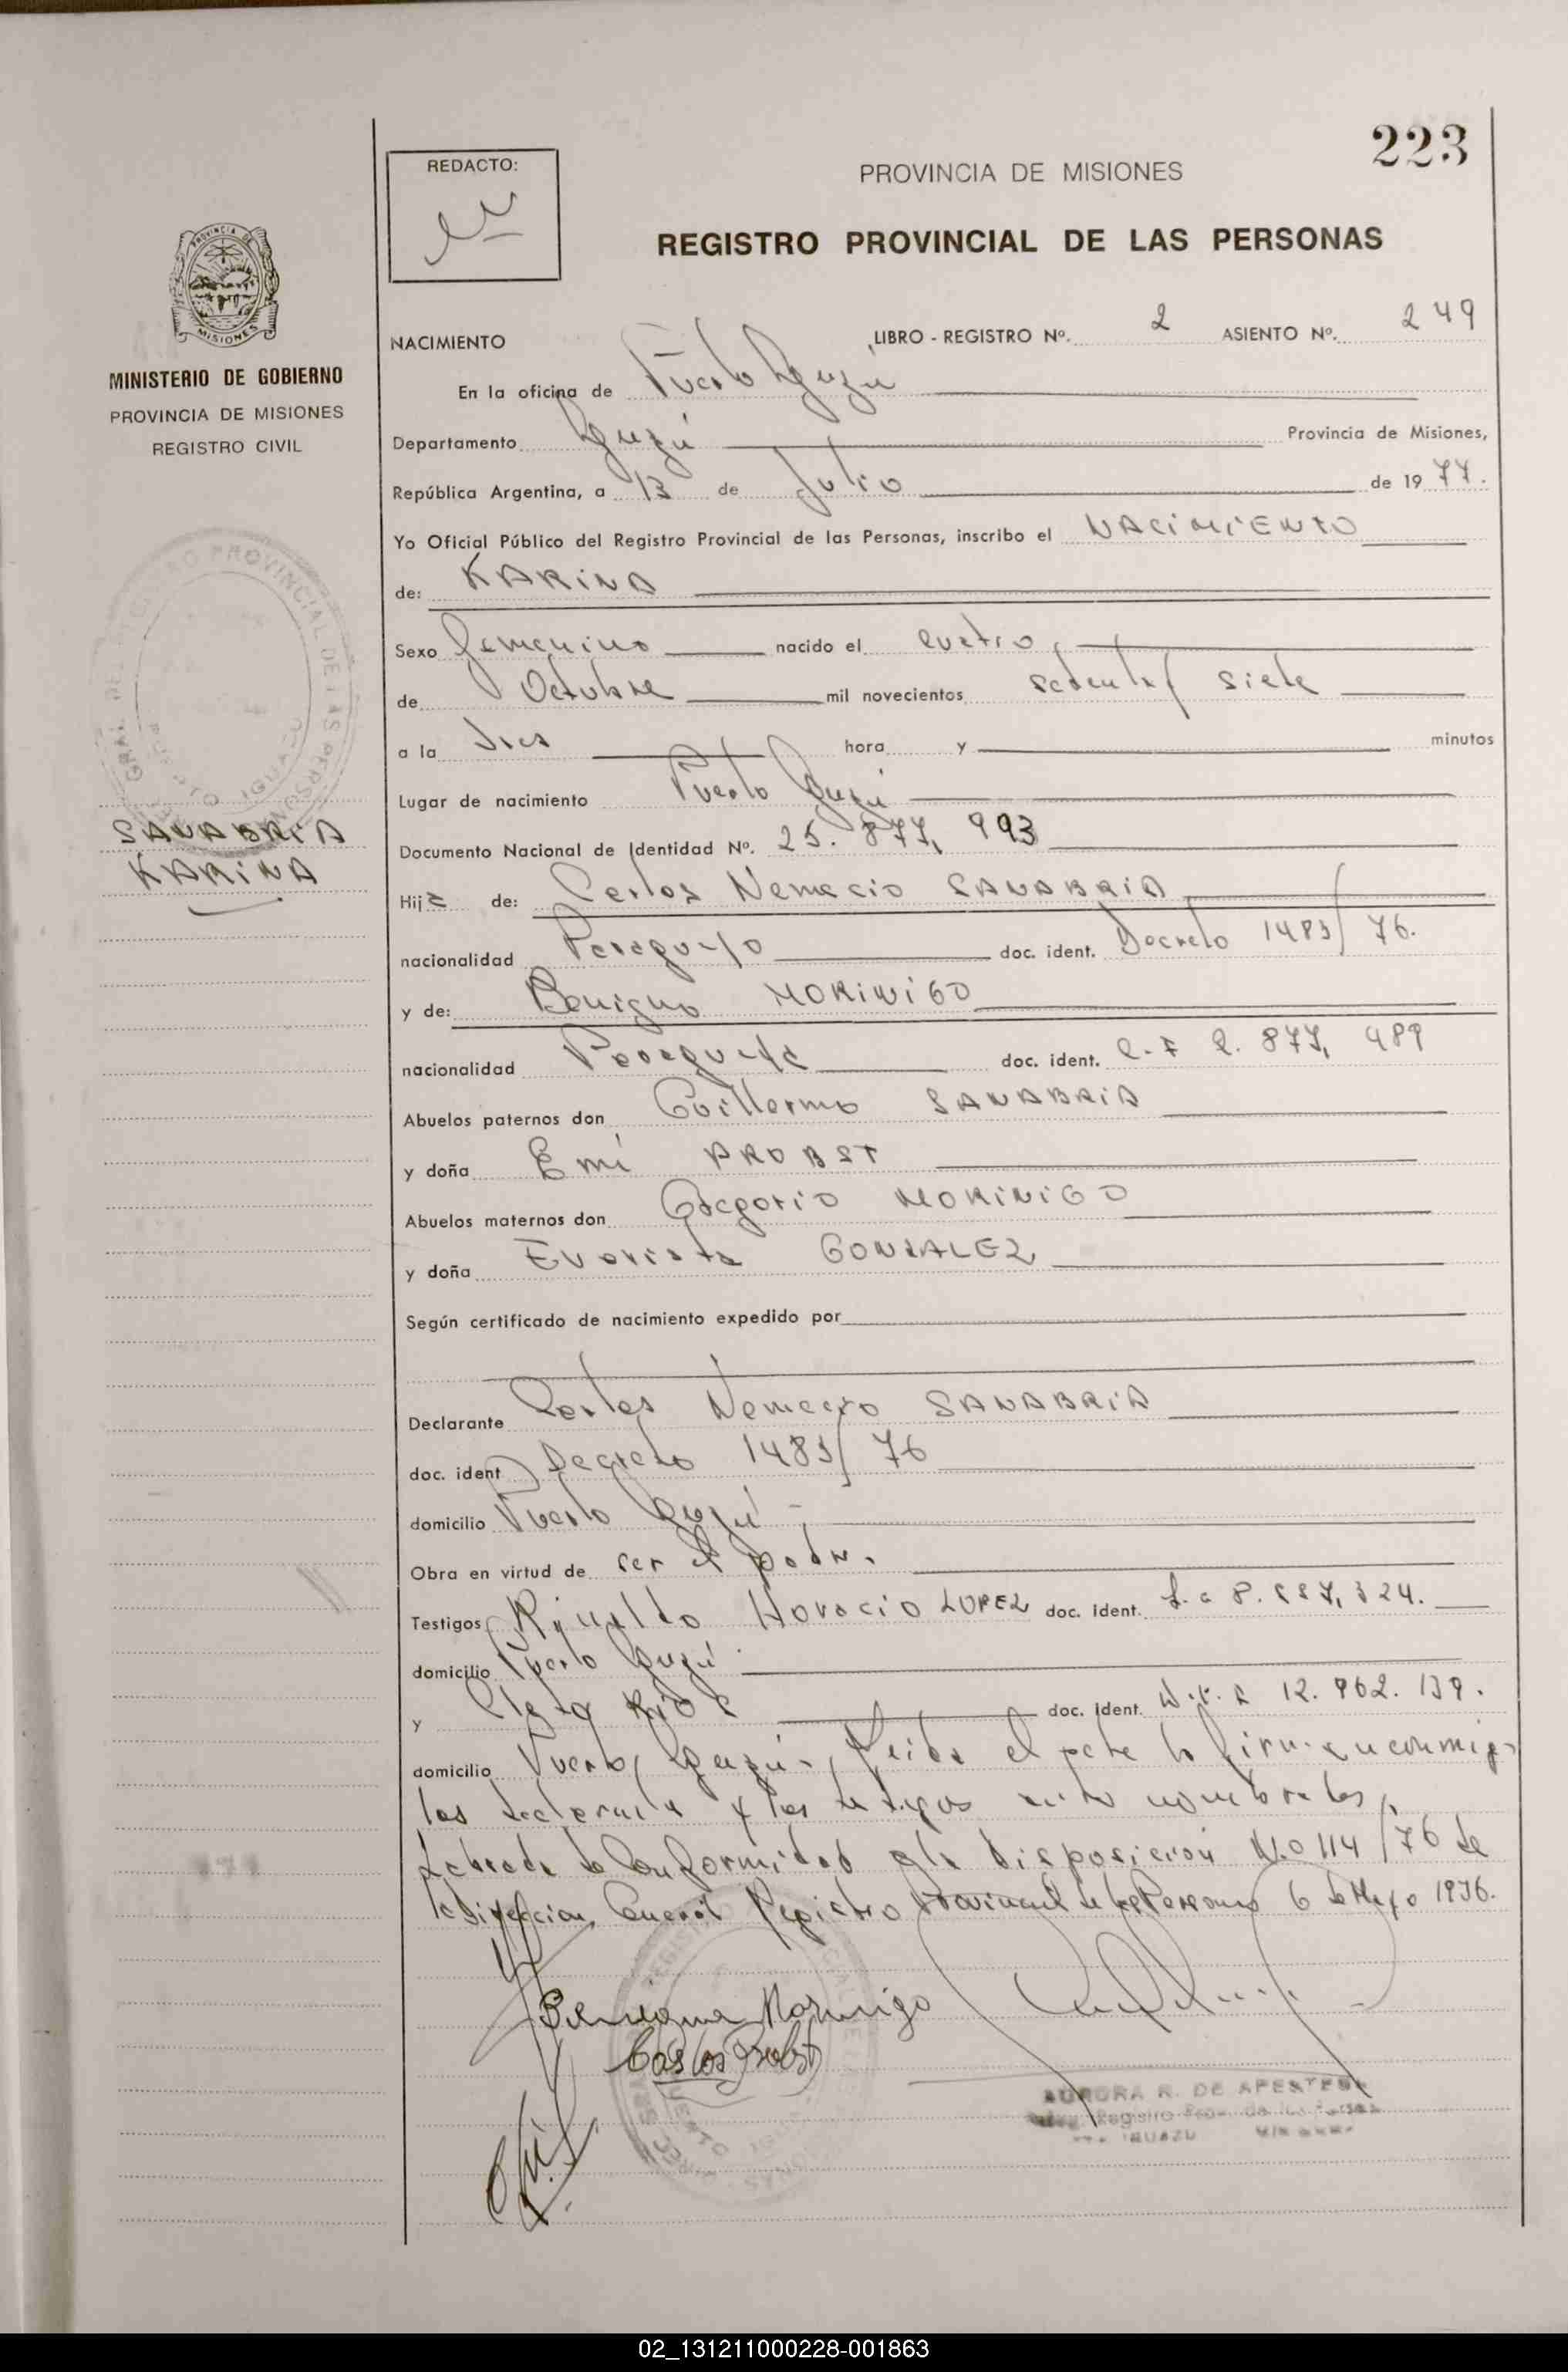 223
REDACTO:
PROVINCIA DE MISIONES
REGISTRO PROVINCIAL DE LAS PERSONAS
PROVINCIA DE
MISIONES
MINISTERIO DE GOBIERNO
PROVINCIA DE MISIONES
REGISTRO CIVIL
NACIMIENTO LIBRO - REGISTRO Nº. 2 ASIENTO Nº. 249
En la oficina de Puerto Iguazú
Departamento Iguazú Provincia de Misiones,
República Argentina, a 13 de Julio de 1977.
Yo Oficial Público del Registro Provincial de las Personas, inscribo el NACIMIENTO
de: KARINA
Sexo femenino nacido el cuatro
de Octubre mil novecientos setenta y siete
a la tres hora y minutos
Lugar de nacimiento Puerto Iguazú
SANABRIA
KARINA
Documento Nacional de Identidad Nº. 25.877.993
Hija de: Carlos Nemecio SANABRIA
nacionalidad Paraguayo doc. ident. Decreto 1483/76.
y de: Benigna MORINIGO
nacionalidad Paraguaya doc. ident. 2.877.489
Abuelos paternos don Guillermo SANABRIA
y doña Emi PROBST
Abuelos maternos don Gregorio MORINIGO
y doña Evarista GONZALEZ
Según certificado de nacimiento expedido por
Declarante Carlos Nemecio SANABRIA
doc. ident Decreto 1483/76
domicilio Puerto Iguazú
Obra en virtud de ser el padre.
Testigos Horacio LOPEZ doc. ident.
domicilio Puerto Iguazú
y doc. ident. 12.962.139.
domicilio Puerto Iguazú. Leída el acta la firman conmigo
los declarante y los testigos nombrados
Labrada de Conformidad a la Disposición N.o 114/76 de
la Dirección General Registro Provincial de las Personas 6 de Mayo 1976.
Benigna Morinigo
Carlos Probst
AURORA R. DE
02_131211000228-001863